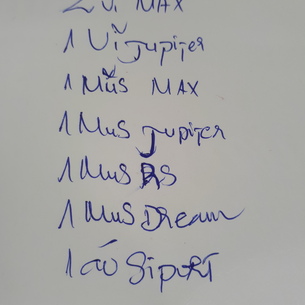 2 Vỉ MAX
1 Vỉ Jupiter
1 Mũs MAX
1 Mus Jupiter
1 Mus RS
1 Mus Dream
1 áo Siport